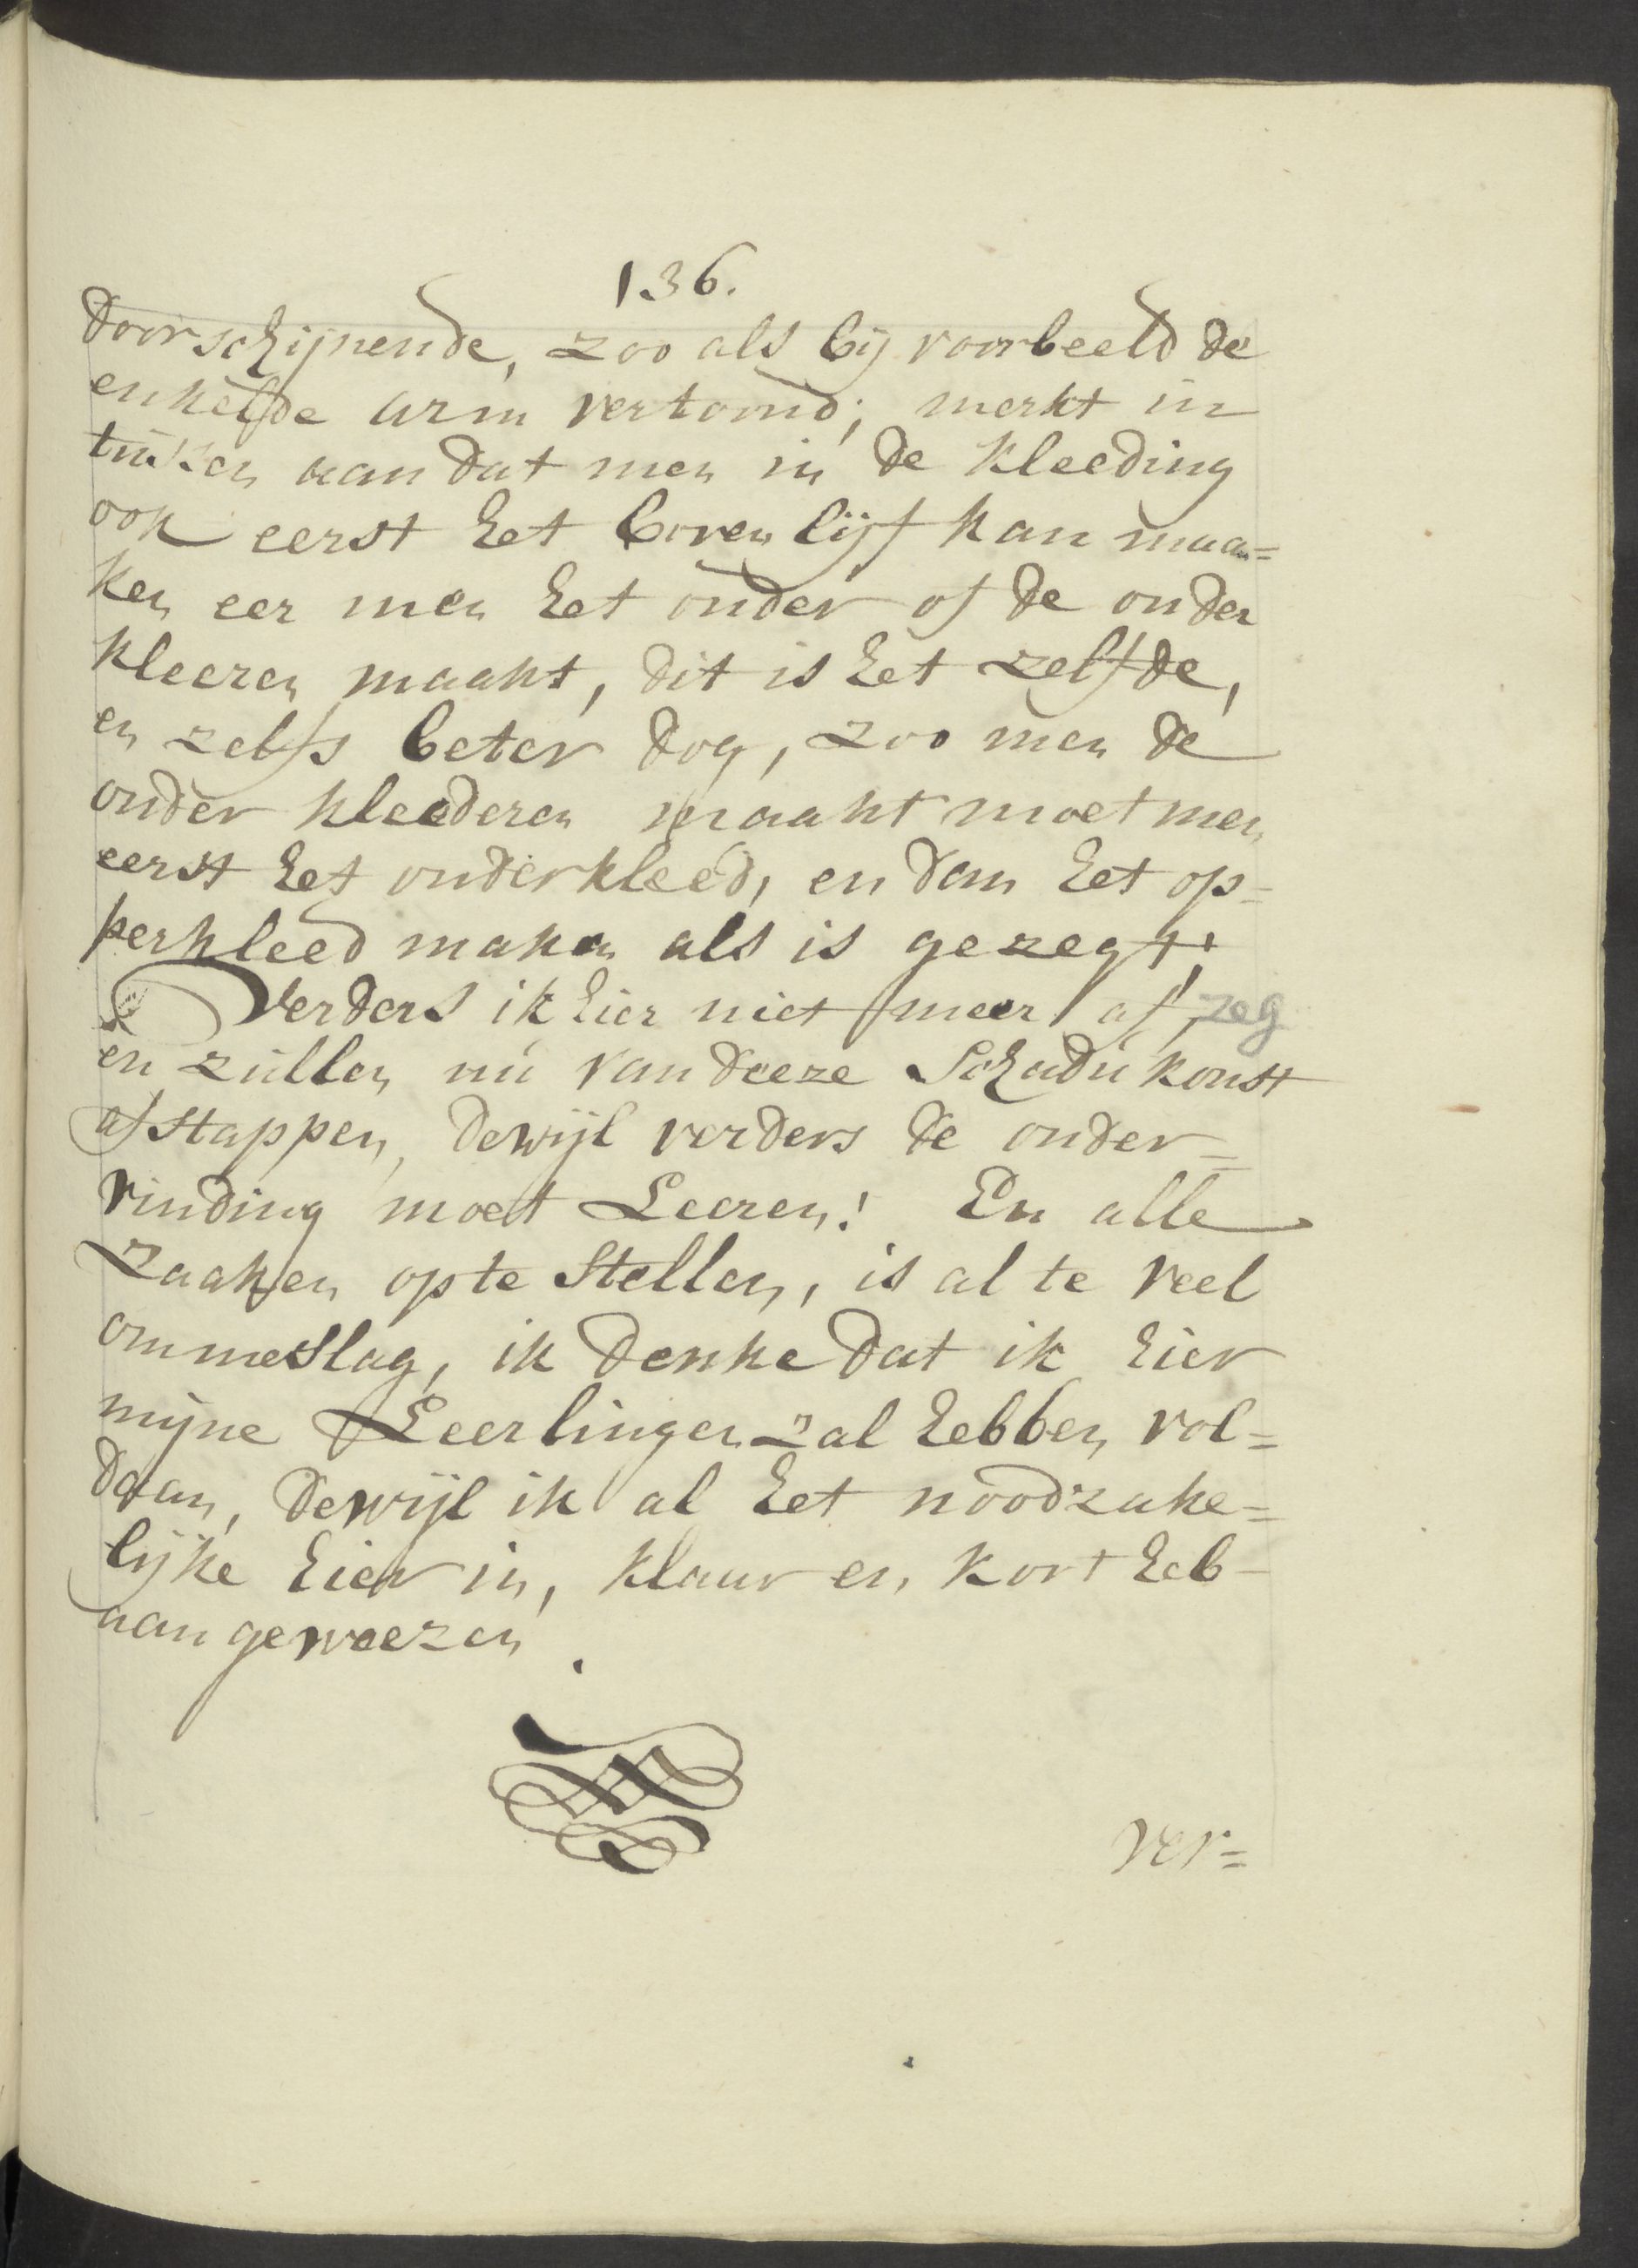 136.
doorschijnende, zoo als bij voorbeeld de
enkelde arm vertoond; merkt in
tussen aan dat men in de kleeding
ook eerst het boven lijf kan maa=
ken eer men het onder of de onder
kleeren maakt, dit is het zelfde,
en zelfs beter dog, zoo men de
onder kleederen maakt moet men
eerst het onderkleed, en dan het op=
perkleed maken als is gezegt.
Verders ik hier niet meer af, zeg
en zullen nu van deeze Schadu konst
afstappen, dewijl verders de onder=
vinding moet Leeren! En alle
zaaken op te Stellen, is al te veel
ommeslag, ik denke dat ik hier
mijne Leerlingen zal hebben vol=
daan, dewijl ik al het noodzake=
lijke hier in, klaar en kort heb
aangeweezen.
ver=